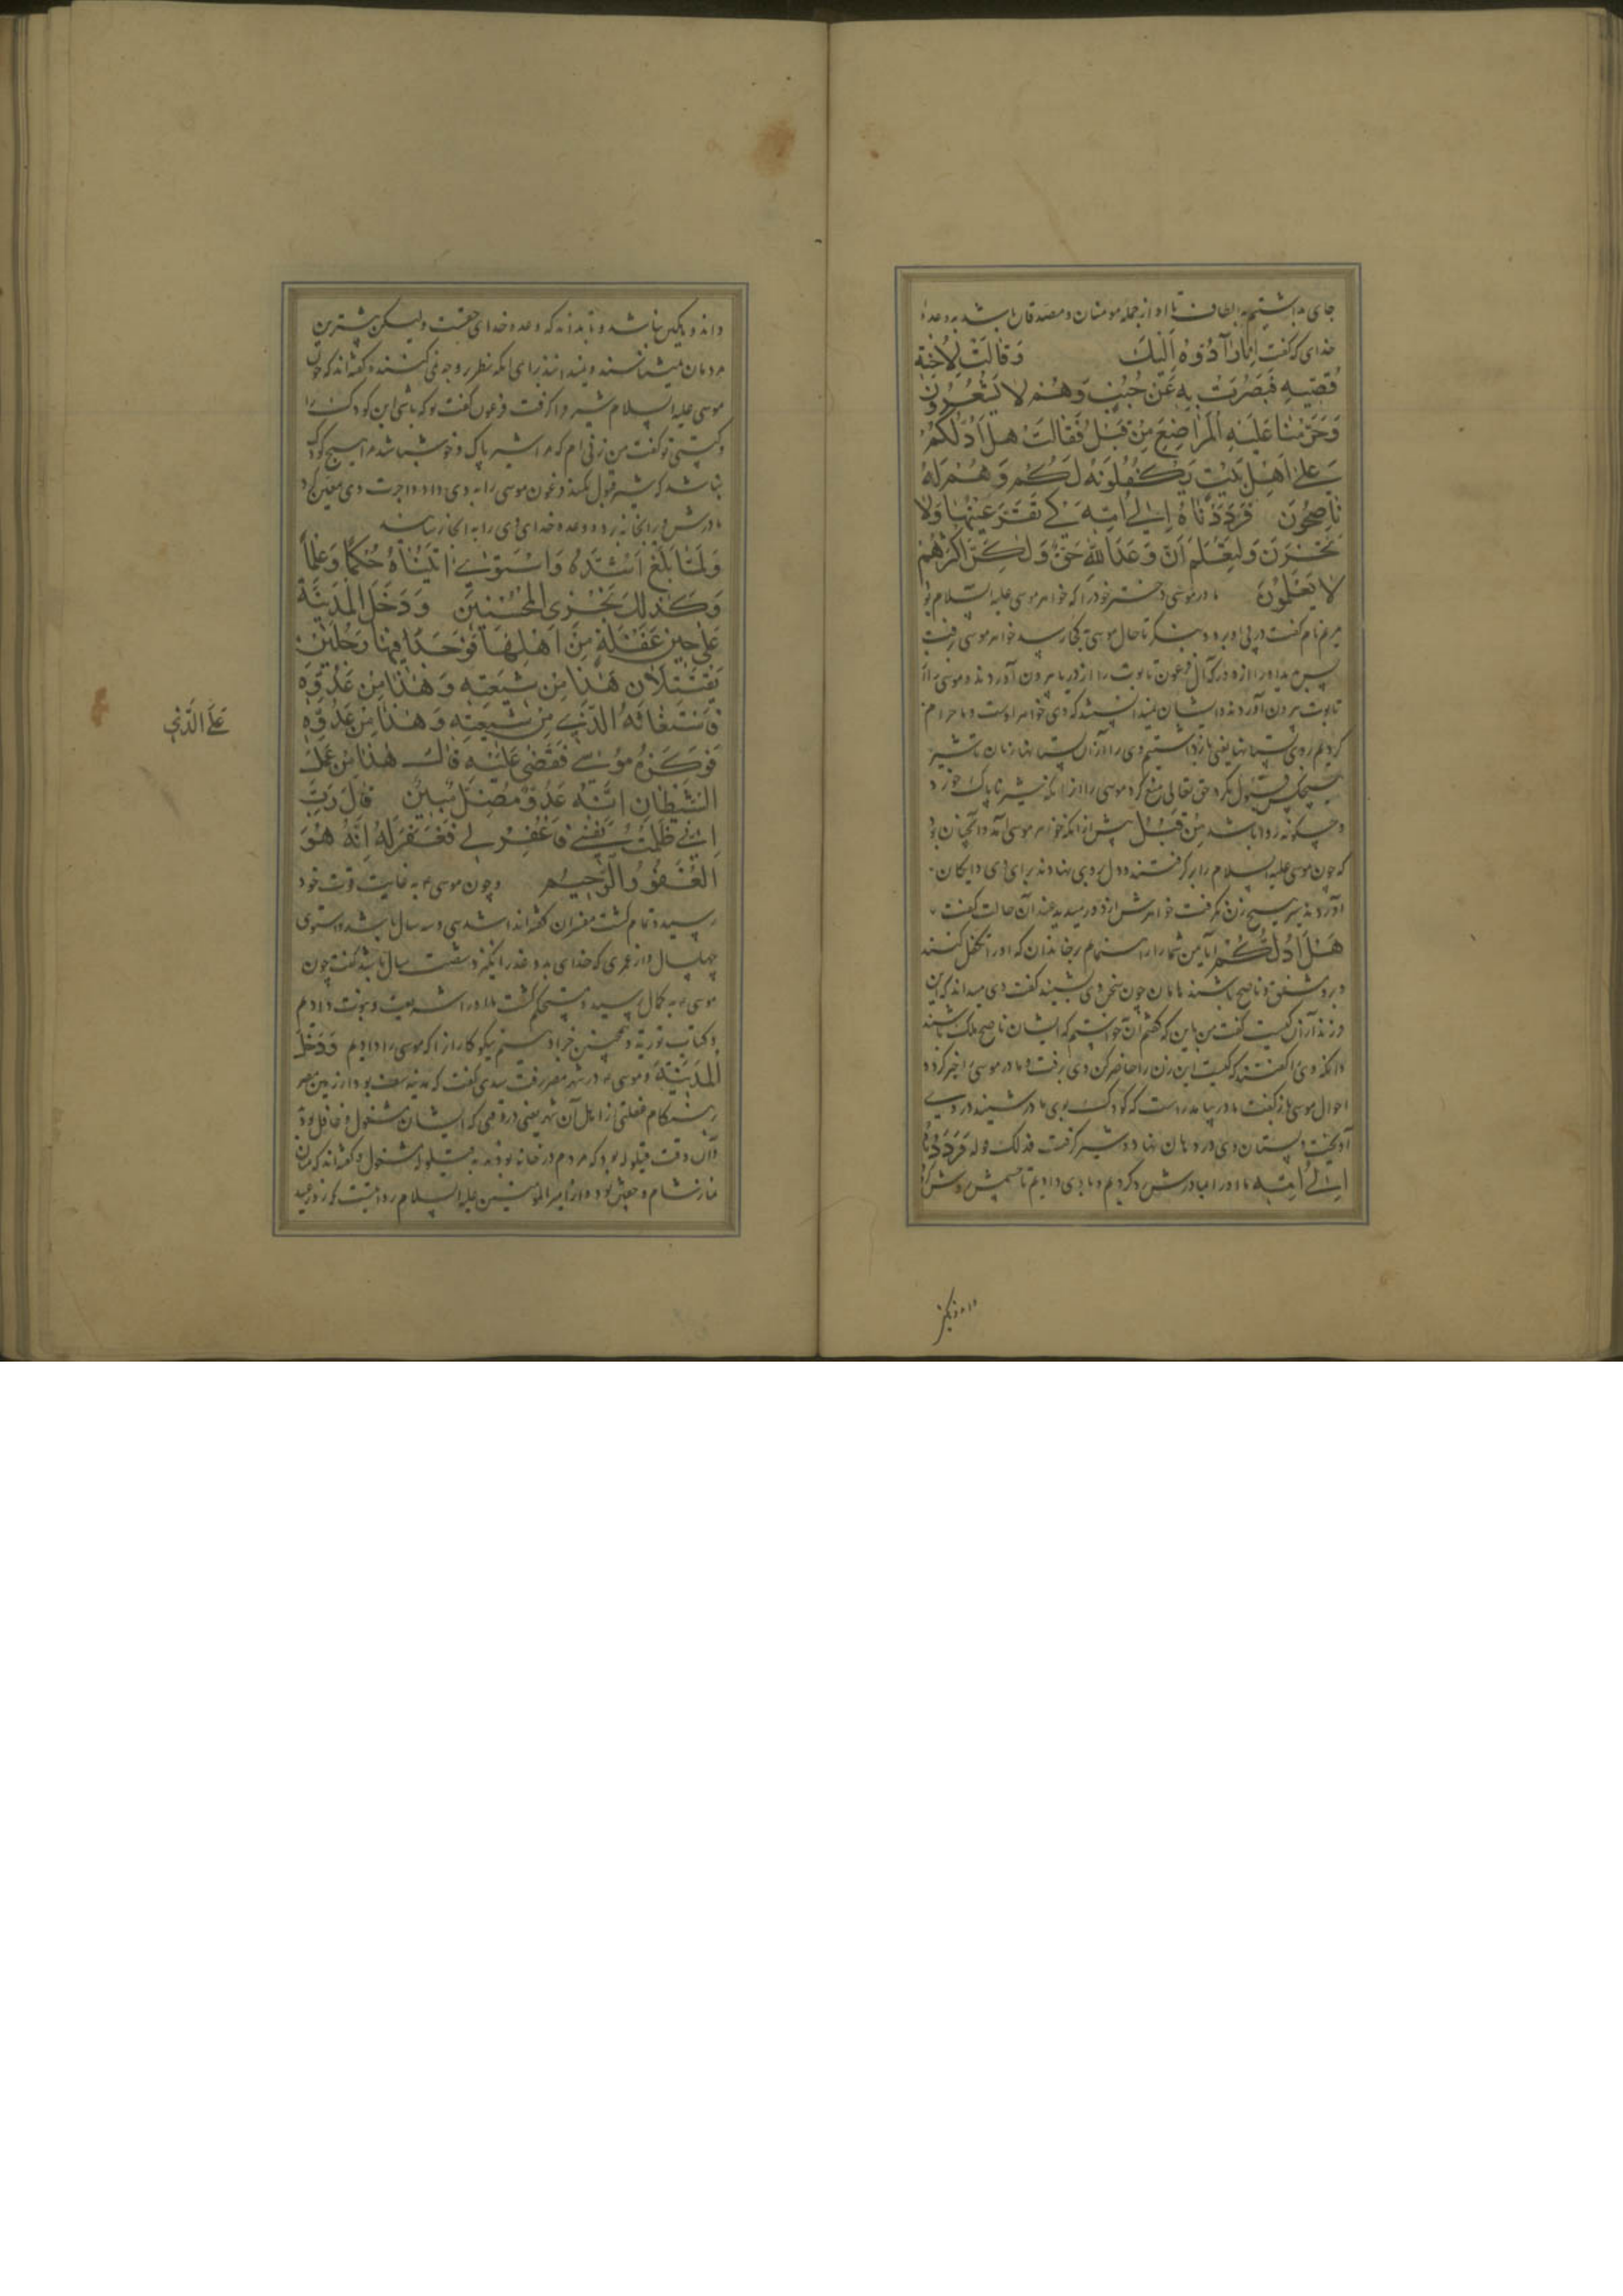 جای بداشتیم به الطاف تا او از جمله مومنان و مصدقان باشد به وعدهٔ
خدای که گفت اِنّا رَآدُّوهُ اِلَیْكَ وَقَالَتْ لِاُخْتِهِ
قُصِّیهِ فَبَصُرَتْ بِهِ عَنْ جُنُبٍ وَهُمْ لا یَشْعُرُونَ
وَحَرَّمْنَا عَلَیْهِ الْمَرَاضِعَ مِنْ قَبْلُ فَقَالَتْ هَلْ اَدُلُّكُمْ
عَلٰی اَهْلِ بَیْتٍ یَكْفُلُونَهُ لَكُمْ وَهُمْ لَهُ
نَاصِحُونَ فَرَدَدْنَاهُ اِلٰی اُمِّهِ كَیْ تَقَرَّ عَیْنُهَا وَلا
تَحْزَنَ وَلِتَعْلَمَ اَنَّ وَعْدَ اللّٰهِ حَقٌّ وَلٰكِنَّ اَكْثَرَهُمْ
لا یَعْلَمُونَ مادر موسی دختر خود را که خواهر موسی علیه السلام بود
مریم نام گفت در پی او برو و بنگر تا حال موسی بکجا رسید خواهر موسی رفت
پس بدید او را از دور که آل فرعون تابوت را از دریا بیرون آوردند و موسی را از
تابوت بیرون آوردند و ایشان نمیدانستند که وی خواهر اوست و ما حرام
کردیم بر وی پستانها یعنی باز داشتیم وی را از آن پستانها زنان تا شیر
هیچکس قبول نکرد حق تعالی منع کرد موسی را از آنکه شیر ناپاک خورد
و چگونه روا باشد مِنْ قَبْلُ پیش از آنکه خواهر موسی آمد و آنچنان بود
که چون موسی علیه السلام را برگرفتند و دل بر وی نهادند برای وی دایگان
آوردند شیر هیچ زن نگرفت خواهرش از دور میدید عند آن حالت گفت
هَلْ اَدُلُّكُمْ آیا من شما را راه نمایم بر خاندان که او را تکفل کنند
و برو مشفق و ناصح باشند هامان چون سخن وی بشنید گفت وی میداند که این
فرزند از آن کیست گفت من باین که گفتم آن خواستم که ایشان ناصح ملک باشند
وانکه وی را گفتند که کیست این زن را حاضر کن وی برفت و مادر موسی را خبر کرد و
احوال موسی باز گفت مادر بیامد راست که کودک بوی مادر شنید در وی
آویخت و پستان وی در دهان نهاد و شیر گرفت فذلک قوله فَرَدَدْنَاهُ
اِلٰی اُمِّهِ ما او را با مادرش رد کردیم و با وی دادیم تا چشمش روشن گردد
و اندوهگین نباشد و تا بداند که وعده خدای حقست ولیکن بیشترین
مردمان نمیشناسند و نمیدانند برای آنکه نظر در وجه نمی کنند و گفته اند که چون
موسی علیه السلام شیر وا گرفت فرعون گفت تو که باشی این کودک را
گفت من زنی ام که مرا شیر پاک و خوش باشد مرا هیچ کودک
نباشد که شیر قبول نکند فرعون موسی را به وی داد و اجرت وی معین کرد
مادرش وی را بخانه برد و وعده خدای وی را به انجاز رسانید
وَلَمَّا بَلَغَ اَشُدَّهُ وَاسْتَوٰی اٰتَیْنَاهُ حُكْمًا وَعِلْمًا
وَكَذٰلِكَ نَجْزِی الْمُحْسِنِینَ وَدَخَلَ الْمَدِینَةَ
عَلٰی حِینِ غَفْلَةٍ مِنْ اَهْلِهَا فَوَجَدَ فِیهَا رَجُلَیْنِ
یَقْتَتِلَانِ هٰذَا مِنْ شِیعَتِهِ وَهٰذَا مِنْ عَدُوِّهِ
فَاسْتَغَاثَهُ الَّذِی مِنْ شِیعَتِهِ وَهٰذَا مِنْ عَدُوِّهِ
عَلَی الَّذِی
فَوَكَزَهُ مُوسٰی فَقَضٰی عَلَیْهِ قَالَ هٰذَا مِنْ عَمَلِ
الشَّیْطَانِ اِنَّهُ عَدُوٌّ مُضِلٌّ مُبِینٌ قَالَ رَبِّ
اِنِّی ظَلَمْتُ نَفْسِی فَاغْفِرْ لِی فَغَفَرَ لَهُ اِنَّهُ هُوَ
الْغَفُورُ الرَّحِیمُ و چون موسی به غایت قوت خود
رسید و تمام گشت مفسران گفته اند اشد سی و سه سال باشد و استوی
چهل سال و از عمری که خدای بدو عذر انگیزد شصت سال باشد گفت چون
موسی به کمال رسید و مستحکم گشت ما او را شریعت و نبوت دادیم
و کتاب توریة و همچنین جزا دهیم نیکوکاران را که موسی را دادیم وَدَخَلَ
الْمَدِینَةَ و موسی در شهر مصر رفت سدی گفت که مدینه منف بود از زمین مصر
هنگام غفلتی از اهل آن شهر یعنی در وقتی که ایشان مشغول و غافل بودند
و آن وقت قیلوله بود که مردم در خانه بودند به قیلوله مشغول و گفته اند که میان
نماز شام و خفتن بود و از امیر المؤمنین علیه السلام روایتست که روز عید